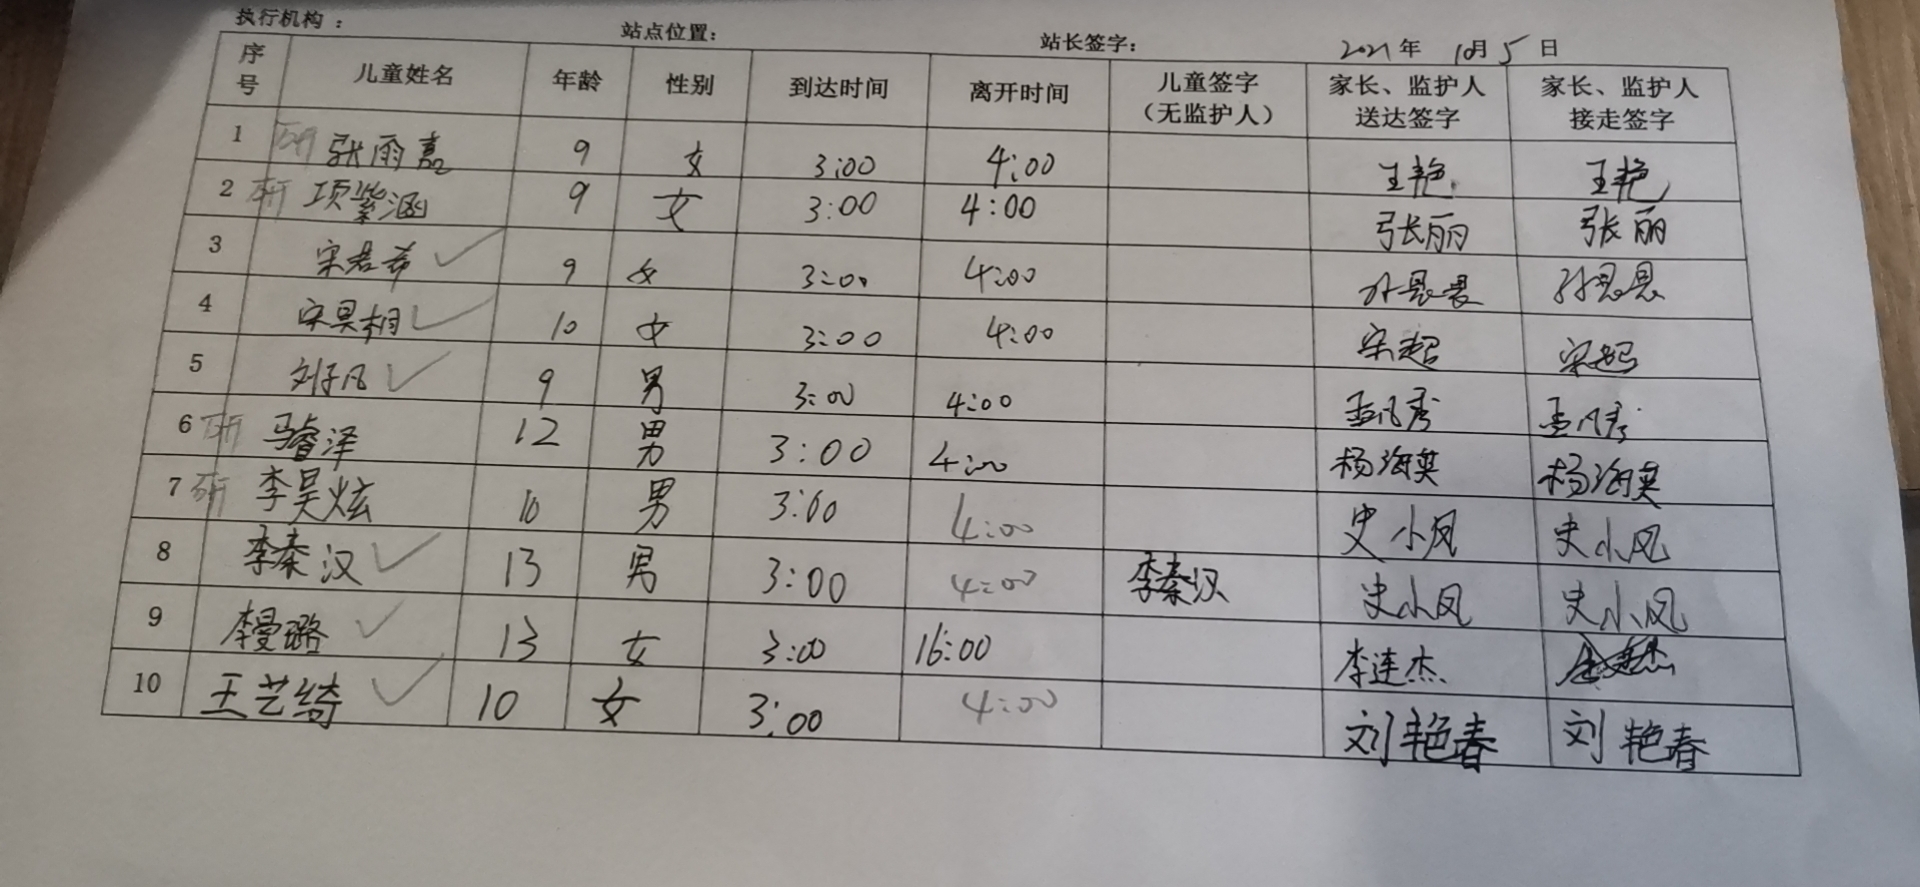 执行机构： 站点位置： 站长签字： 2021年 10月5日
序号 儿童姓名 年龄 性别 到达时间 离开时间 儿童签字（无监护人） 家长、监护人送达签字 家长、监护人接走签字
1 张雨嘉 9 女 3:00 4:00 王艳 王艳
2 项紫涵 9 女 3:00 4:00 张丽 张丽
3 宋君希 ✓ 9 女 3:00 4:00
4 宋昊桐 ✓ 10 女 3:00 4:00 宋超 宋超
5 刘子凡 ✓ 9 男 3:00 4:00
6 马睿泽 12 男 3:00 4:00 杨海英 杨海英
7 李昊炫 10 男 3:00 4:00 史小凤 史小凤
8 李秦汉 ✓ 13 男 3:00 4:00 李秦汉 史小凤 史小凤
9 李曼璐 ✓ 13 女 3:00 16:00 李连杰
10 王艺绮 ✓ 10 女 3:00 4:00 刘艳春 刘艳春